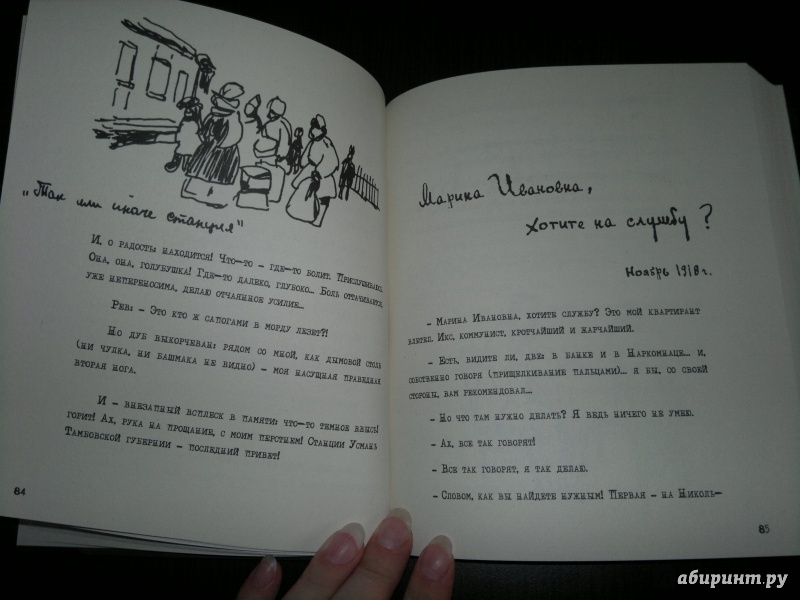 „Так или иначе станция"
И, о радость: находится! Что-то - где-то болит. Прислушиваюсь.
Она, она, голубушка! Где-то далеко, глубоко... Боль оттачивается,
уже непереносима, делаю отчаянное усилие...
Рев: - Это кто ж сапогами в морду лезет?!
Но дуб выкорчеван: рядом со мной, как дымовой столб
(ни чулка, ни башмака не видно) - моя насущная праведная
вторая нога.
И - внезапный всплеск в памяти: что-то темное ввысь!
горит! Ах, рука на прощание, с моим перстнем! Станции Усмань
Тамбовской губернии - последний привет!
84
Марина Ивановна,
хотите на службу?
Ноябрь 1918 г.
- Марина Ивановна, хотите службу? Это мой квартирант
влетел. Икс, коммунист, кротчайший и жарчайший.
- Есть, видите ли, две: в банке и в Наркомнаце... и,
собственно говоря (прищелкивание пальцами)... я бы, со своей
стороны, вам рекомендовал...
- Но что там нужно делать? Я ведь ничего не умею.
- Ах, все так говорят!
- Все так говорят, я так делаю.
- Словом, как вы найдете нужным! Первая - на Николь-
85
абиринт.ру